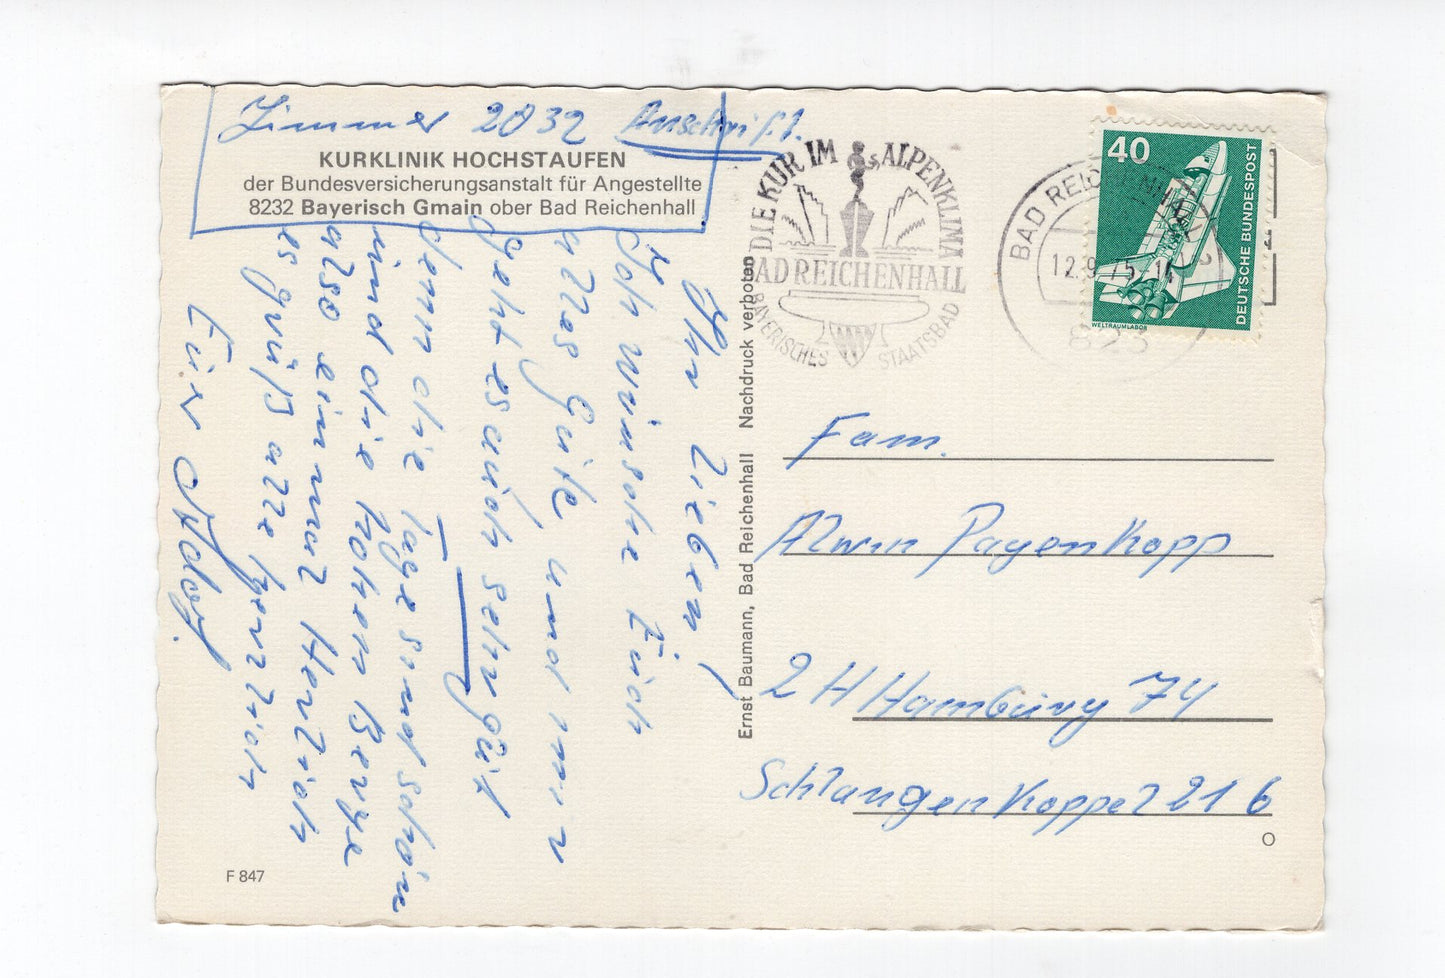 Zimmer 2032 Anschrift.
KURKLINIK HOCHSTAUFEN
der Bundesversicherungsanstalt für Angestellte
8232 Bayerisch Gmain ober Bad Reichenhall
Ihr Lieben!
Ich wünsche Euch
alles Gute und mir
geht es auch sehr gut
denn die Lage sind schöne
und die hohen Berge
also einmal Herzlich
es grüßt alle herzlich
Euer Adolf.
F 847
Ernst Baumann, Bad Reichenhall Nachdruck verboten
DIE KUR IM ALPENKLIMA
BAD REICHENHALL
BAYERISCHES STAATSBAD
BAD REICHENHALL
12.9.75-14
823
40
DEUTSCHE BUNDESPOST
WELTRAUMLABOR
Fam.
Alwin Payenkopp
2 H Hambúrg 74
Schlangenkoppel 21 6
O